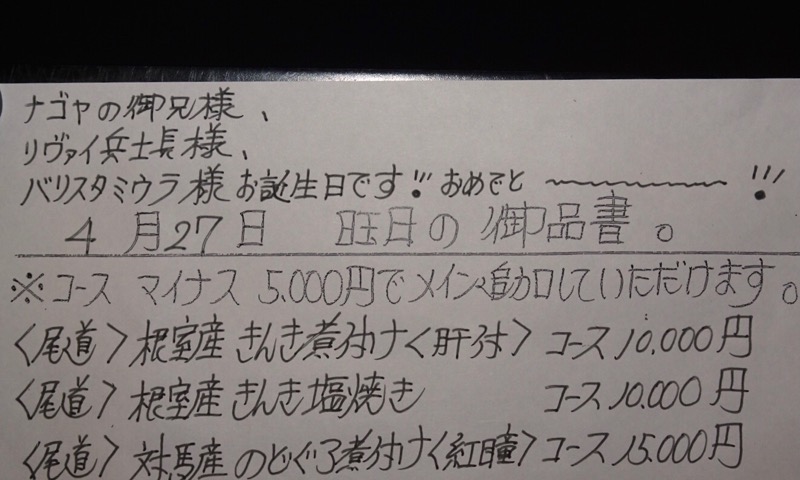 ナゴヤの御兄様、
リヴァイ兵士長様、
バリスタミウラ様お誕生日です!!おめでと〜〜〜!!!
4月27日 旺日の御品書。
※コース マイナス 5.000円でメイン追加していただけます。
〈尾道〉根室産きんき煮付け〈肝付〉コース10.000円
〈尾道〉根室産きんき塩焼き コース10.000円
〈尾道〉対馬産のどぐろ煮付け〈紅瞳〉コース15.000円